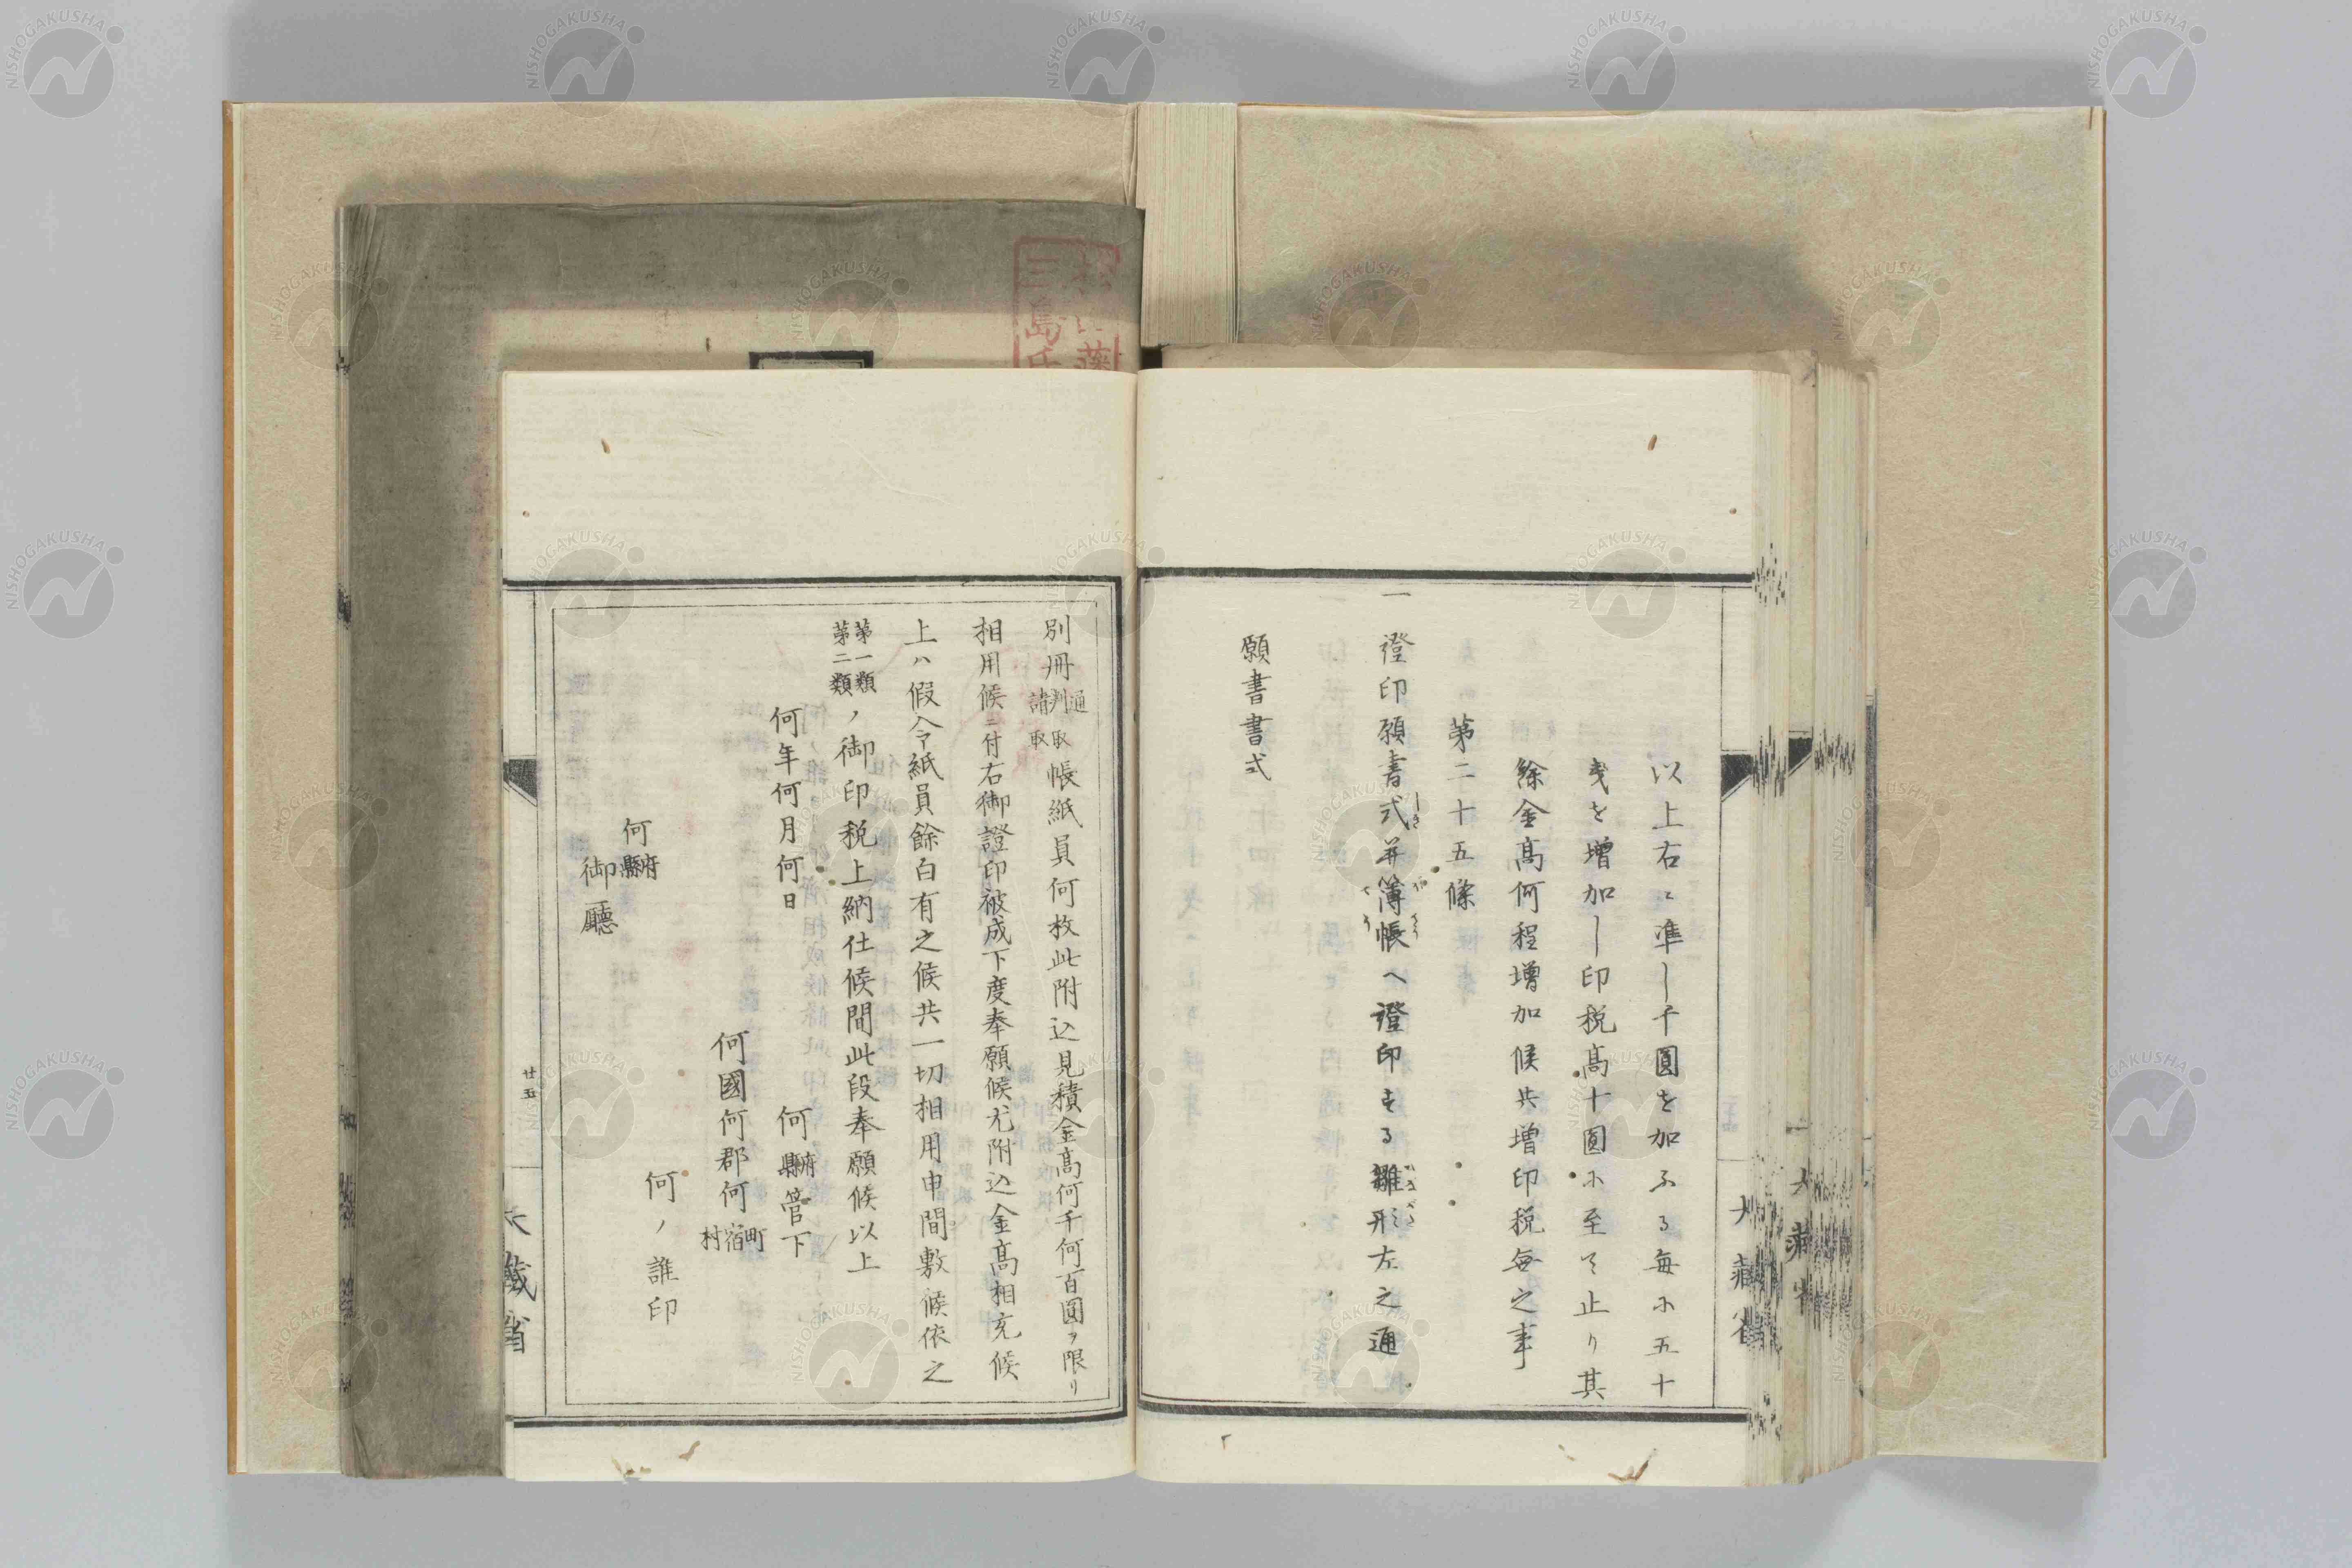 以上右ニ準シ千圓を加ふる每に五十
戔を増加し印税高十圓に至て止り其
餘金高何程増加候共増印税每之事
第二十五條
一 證印願書式并簿帳へ證印する雛形左之通
願書書式
大藏省
別冊通判取請取帳紙員何枚此附込見積金高何千何百圓ヲ限リ
相用候ニ付右御證印被成下度奉願候尤附込金高相充候
上ハ假令紙員餘白有之候共一切相用申間敷候依之
第一類第二類ノ御印税上納仕候間此段奉願候以上
何年何月何日
何府縣管下
何國何郡何町宿村
何ノ誰印
何府縣
御廳
廿五
大藏省
三島氏
NISHOGAKUSHA